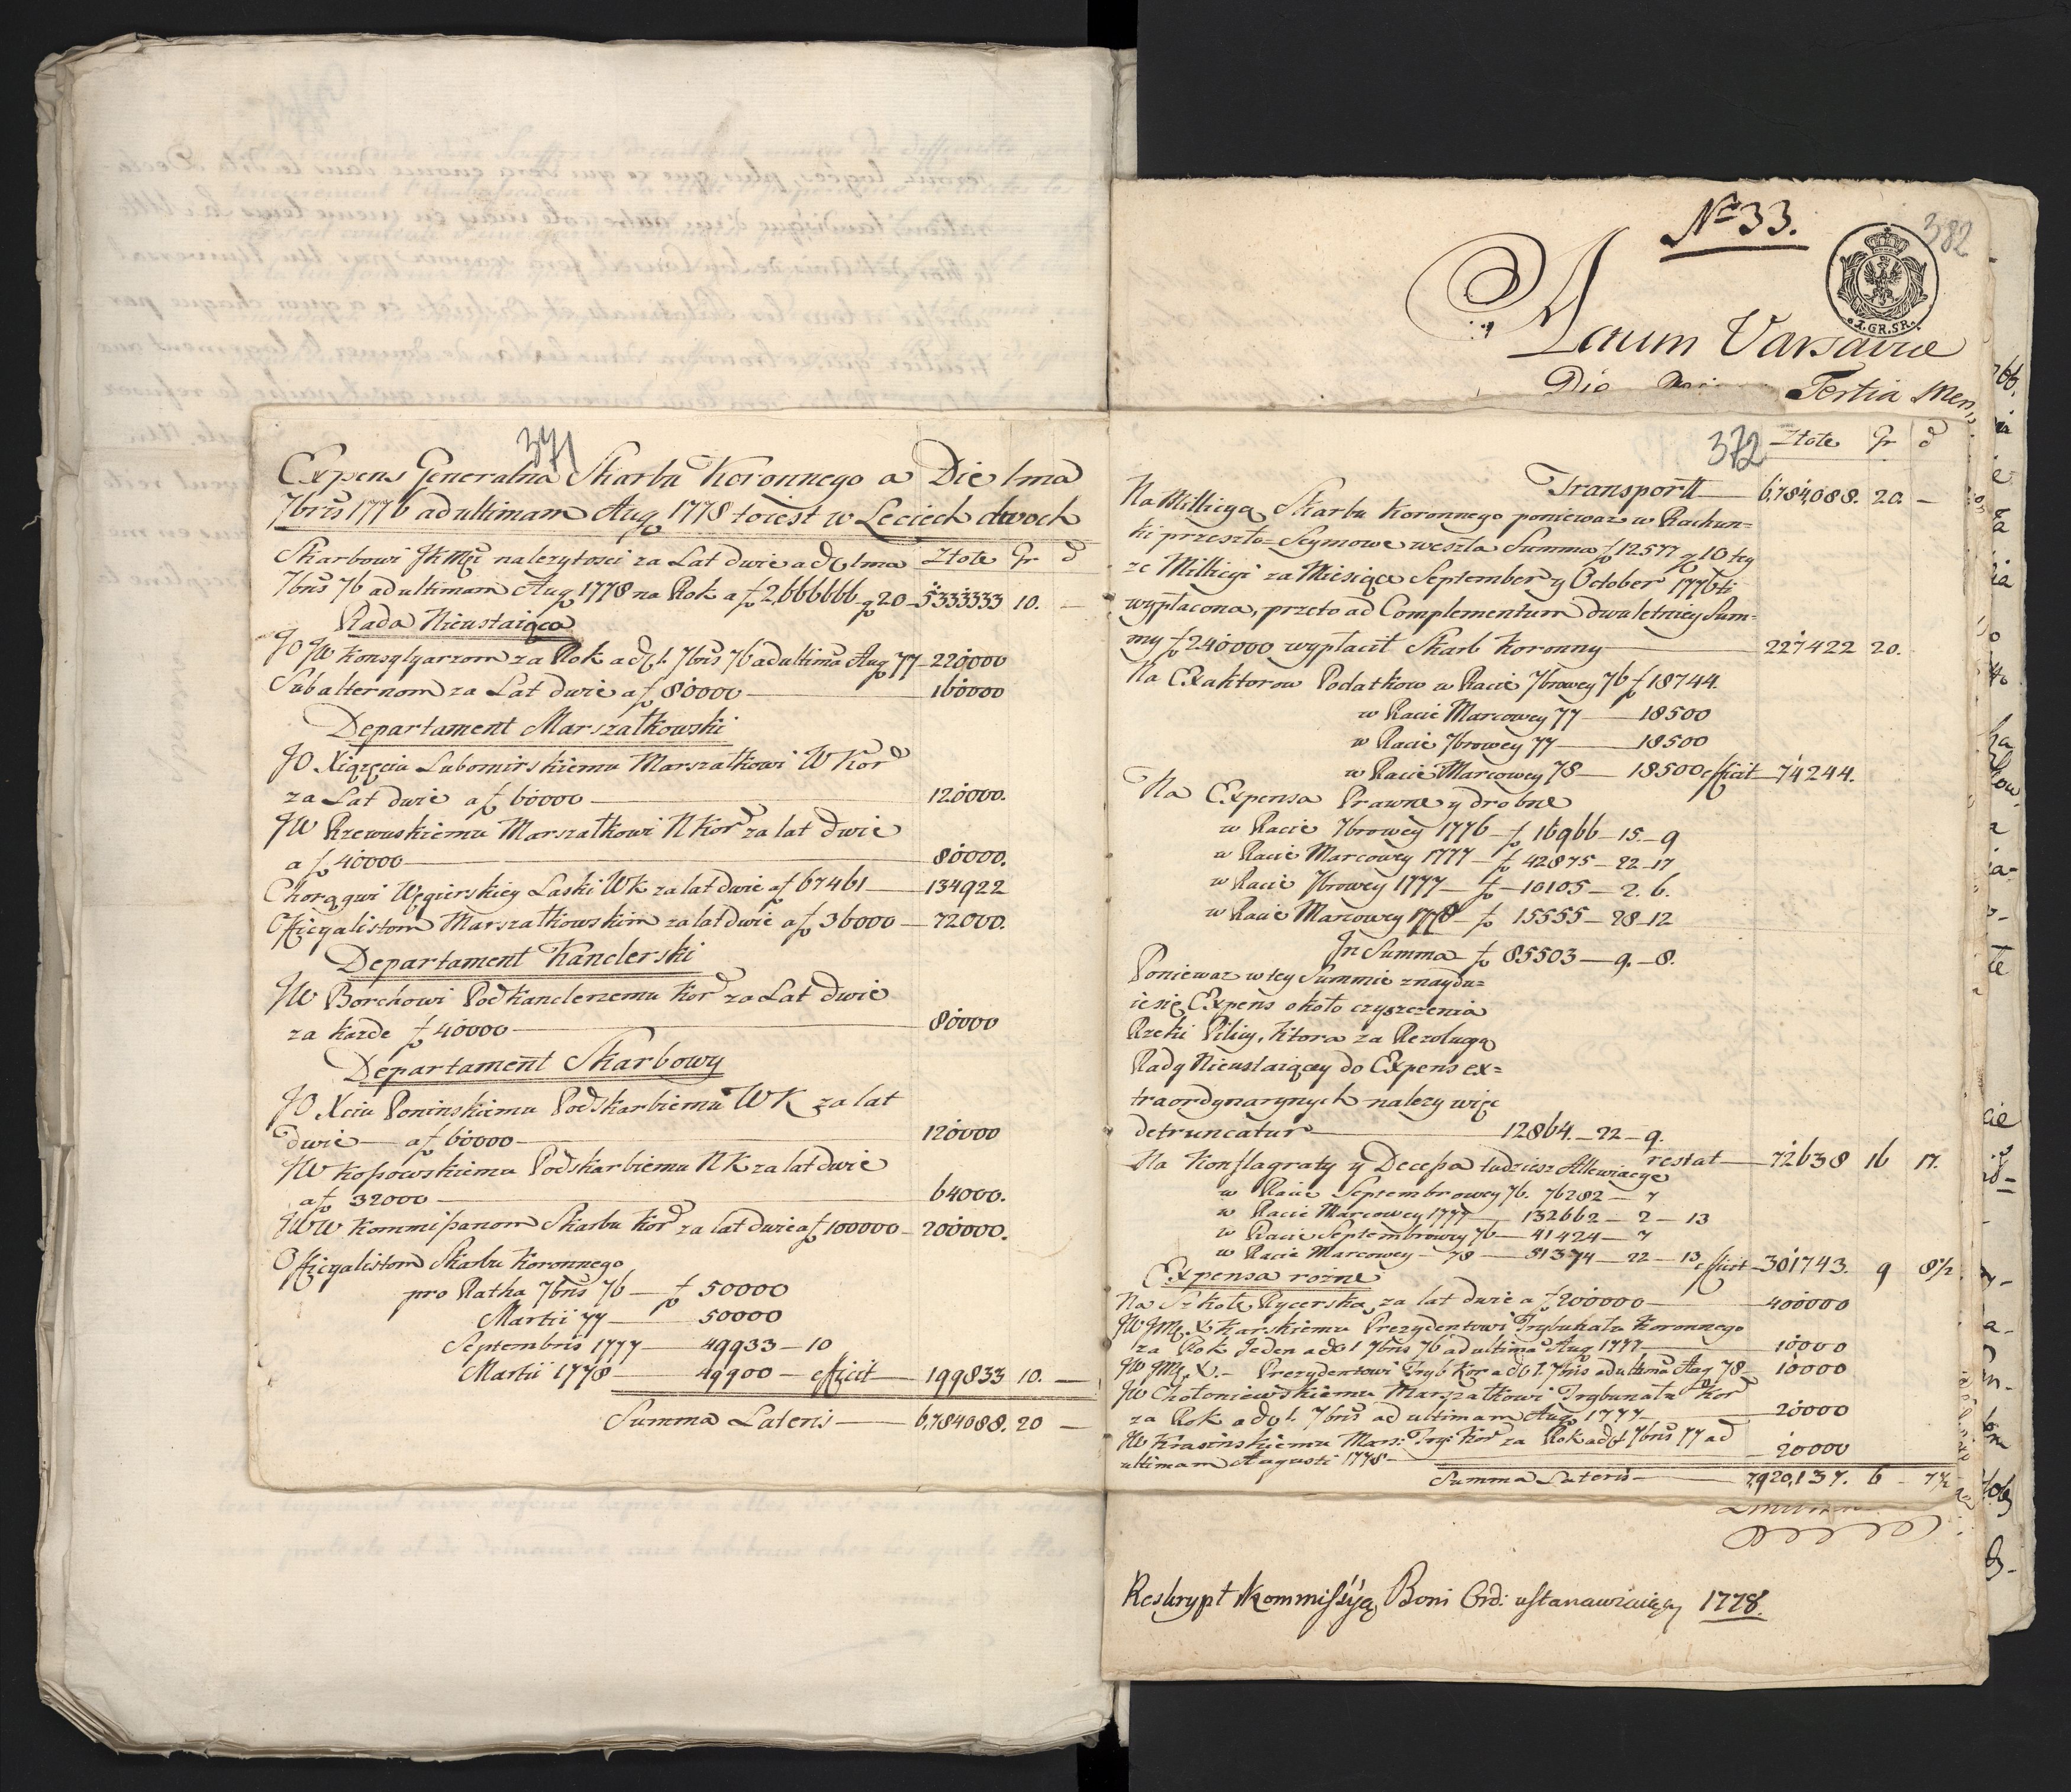 371
Expens Generalna Skarbu Koronnego a Die 1ma
7bris 1776 ad ultimam Aug 1778 toiest w Leciech dwoch
Skarbowi JKMci nalezytosci za Lat dwie a d 1ma Złote Gr d
7bris 76 ad ultimam Aug 1778 na Rok a f 2,666666 g 20 — 5333333 10. —
Rada Nieustaiąca
JO JW Konsylyarzom za Rok a d 1. 7bris 76 ad ultima Aug 77 — 220000
Subalternom za Lat dwie a f 80000 — 160000
Departament Marszałkowski
JO Xiązęciu Lubomirskiemu Marszałkowi W Kor
za Lat dwie a f 60000 — 120000.
JW Rzewuskiemu Marszałkowi N Kor za lat dwie
a f 40000 — 80000.
Chorągwi Węgierskiey Laski WK za lat dwie a f 67461 — 134922
Officyalistom Marszałkowskim za lat dwie a f 36000 — 72000.
Departament Kanclerski
JW Borchowi Podkanclerzemu Kor za Lat dwie
za każde f 40000 — 80000
Departament Skarbowy
JO Xciu Poninskiemu Podskarbiemu WK za lat
dwie — a f 60000 — 120000
JW Kossowskiemu Podskarbiemu NK za lat dwie
a f 32000 — 64000.
JWW Kommissarzom Skarbu Kor za lat dwie a f 100000 — 200000.
Officyalistom Skarbu Koronnego
pro Ratha 7bris 76 — f 50000
Martii 77 — 50000
Septembris 1777 — 49933 — 10
Martii 1778 — 49900 — efficit — 199833 10. —
Summa Lateris — 6,784088. 20 —
No 33.
382
J.GR.SR.
Actum Varsaviae
Die Tertia Men
372 Złote Gr d
Transportt — 6,784,088. 20. —
Na Millicyą Skarbu Koronnego poniewaz w Rachun=
ki przeszło=Seymowe weszła Summa f 12577 g 10 tey
ze Millicyi za Miesiące September y October 1776ti
wypłacona, przeto ad Complementum dwuletniey Sum=
my f 240000 wypłacił Skarb Koronny — 227422 20.
Na Exaktorow Podatkow w Racie 7browey 76 f 18744.
w Racie Marcowey 77 — 18500
w Racie 7browey 77 — 18500
w Racie Marcowey 78 — 18500 efficit — 74244.
Na Expensa Prawne y drobne
w Racie 7browey 1776 — f 16966 — 15. — 9
w Racie Marcowey 1777 — f 42875 — 22 — 17
w Racie 7browey 1777 — f — 10105 — 2. 6.
w Racie Marcowey 1778 — f 15555 — 28 — 12
In Summa f 85503 — 9. — 8.
Poniewaz w tey Summie znaydu=
ie się Expens około czyszczenia
Rzeki Pilicy, ktora za Rezolucyą
Rady Nieustaiącey do Expens ex=
traordynarynych nalezy więc
detruncatur — 12864. — 22 — 9.
restat — 72638 16 17.
Na Konflagraty y Decessa tudziesz Allewiacye
w Racie Septembrowey 76. 76282 — 7
w Racie Marcowey 1777 — 132662 — 2 — 13
w Racie Septembrowey 76 — 41424 — 7
w Racie Marcowey — 78 — 51374 — 22 — 13 efficit — 301743. 9 8½
Expensa rozne
Na Szkołę Rycerską za lat dwie a f 200000 — 400000
JW JMX. Karskiemu Prezydentowi Trybunału Koronnego
za Rok Jeden a d 1 7bris 76 ad ultima Aug 1777 — 10000
JW JMX. — Prezydentowi Tryb Kor a d 1. 7bris ad ultima Aug 78 — 10000
JW Chołoniewskiemu Marszałkowi Trybunału Kor
za Rok a d 1. 7bris ad ultimam Aug 1777 — 20000
JW Krasinskiemu Mars: Try: Kor za Rok a d 1 7bris 77 ad
ultimam Augusti 1778 — 20000
Summa Lateris — 7,920,137. 6 — 7½
Reskrypt Kommissyą Boni Ord: ustanawiaiący 1778.